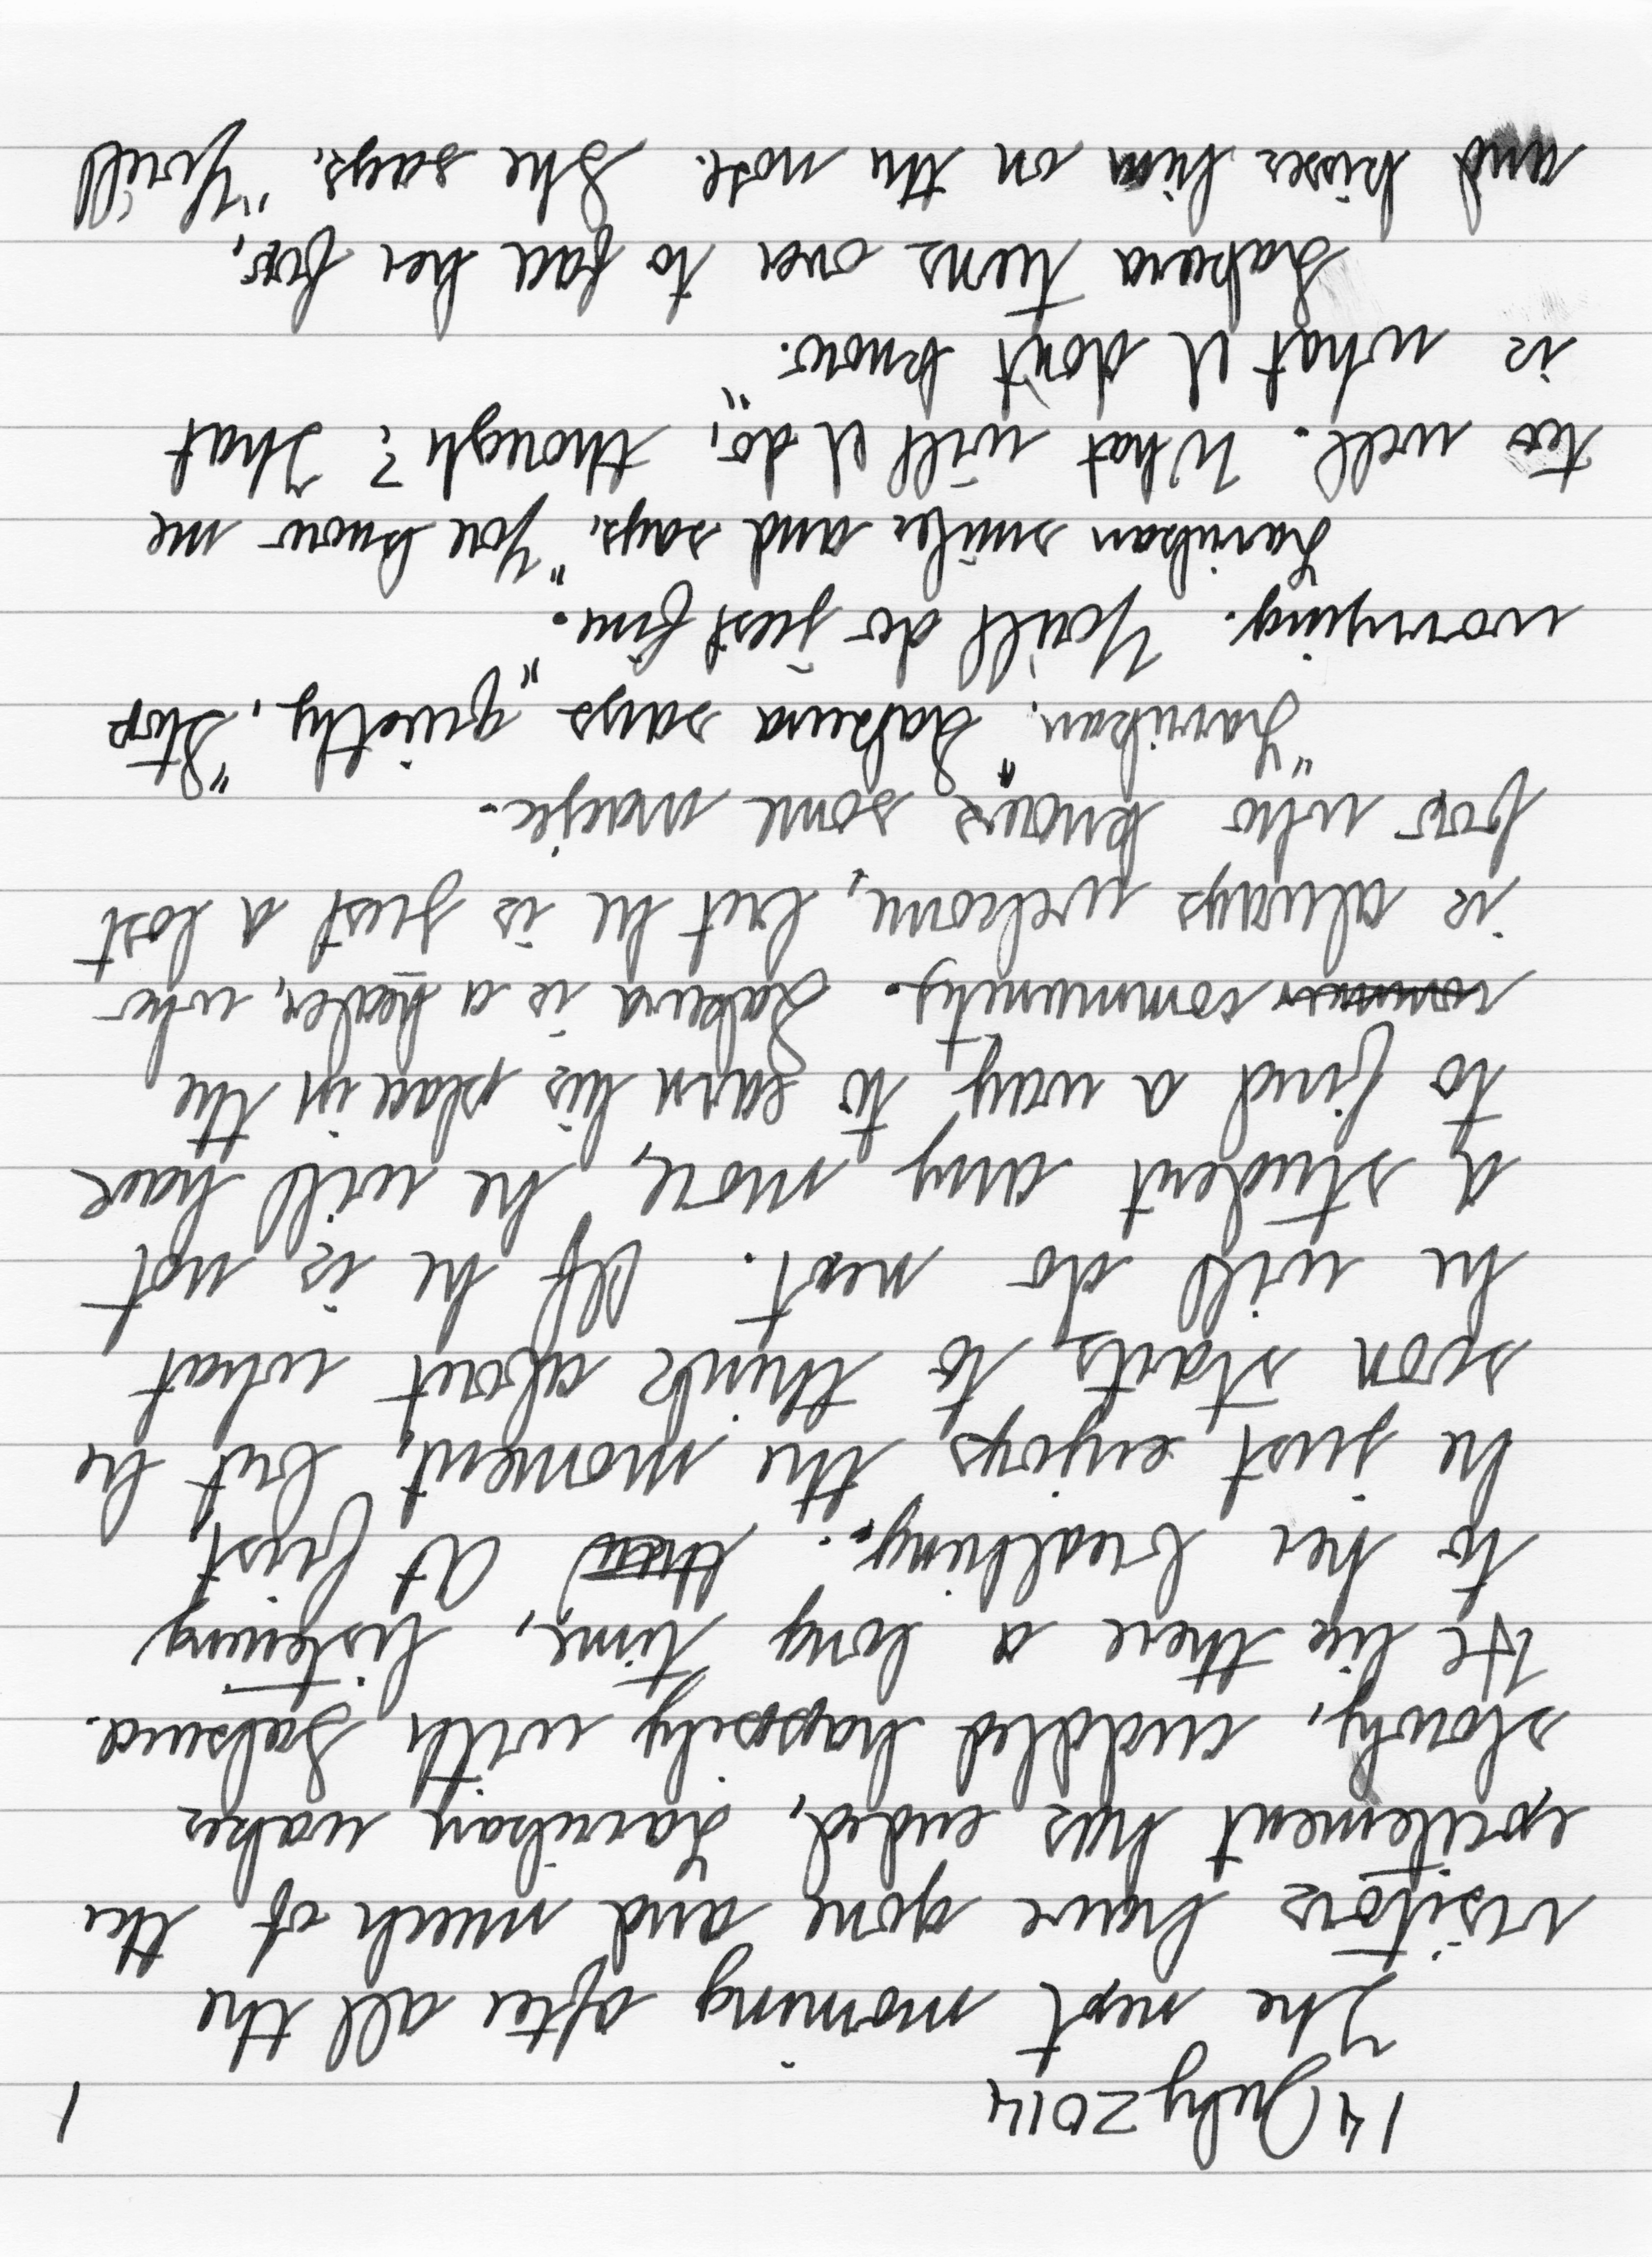 14 July 2014 1
The next morning after all the
visitors have gone and much of the
excitement has ended, Larukan wakes
slowly, cuddled happily with Sakura.
He lie there a long time, listening
to her breathing. At first,
he just enjoys the moment, but he
soon starts to think about what
he will do next. If he is not
a student any more, he will have
to find a way to earn his place in the
community. Sakura is a healer, who
is always welcome, but he is just a lost
fox who knows some magic.
"Larukan," Sakura says quietly, "Stop
worrying. You'll do just fine."
Larukan smiles and says, "You know me
too well. What will I do, though? That
is what I don't know."
Sakura turns over to face her fox,
and kisses him on the nose. She says, "You'll